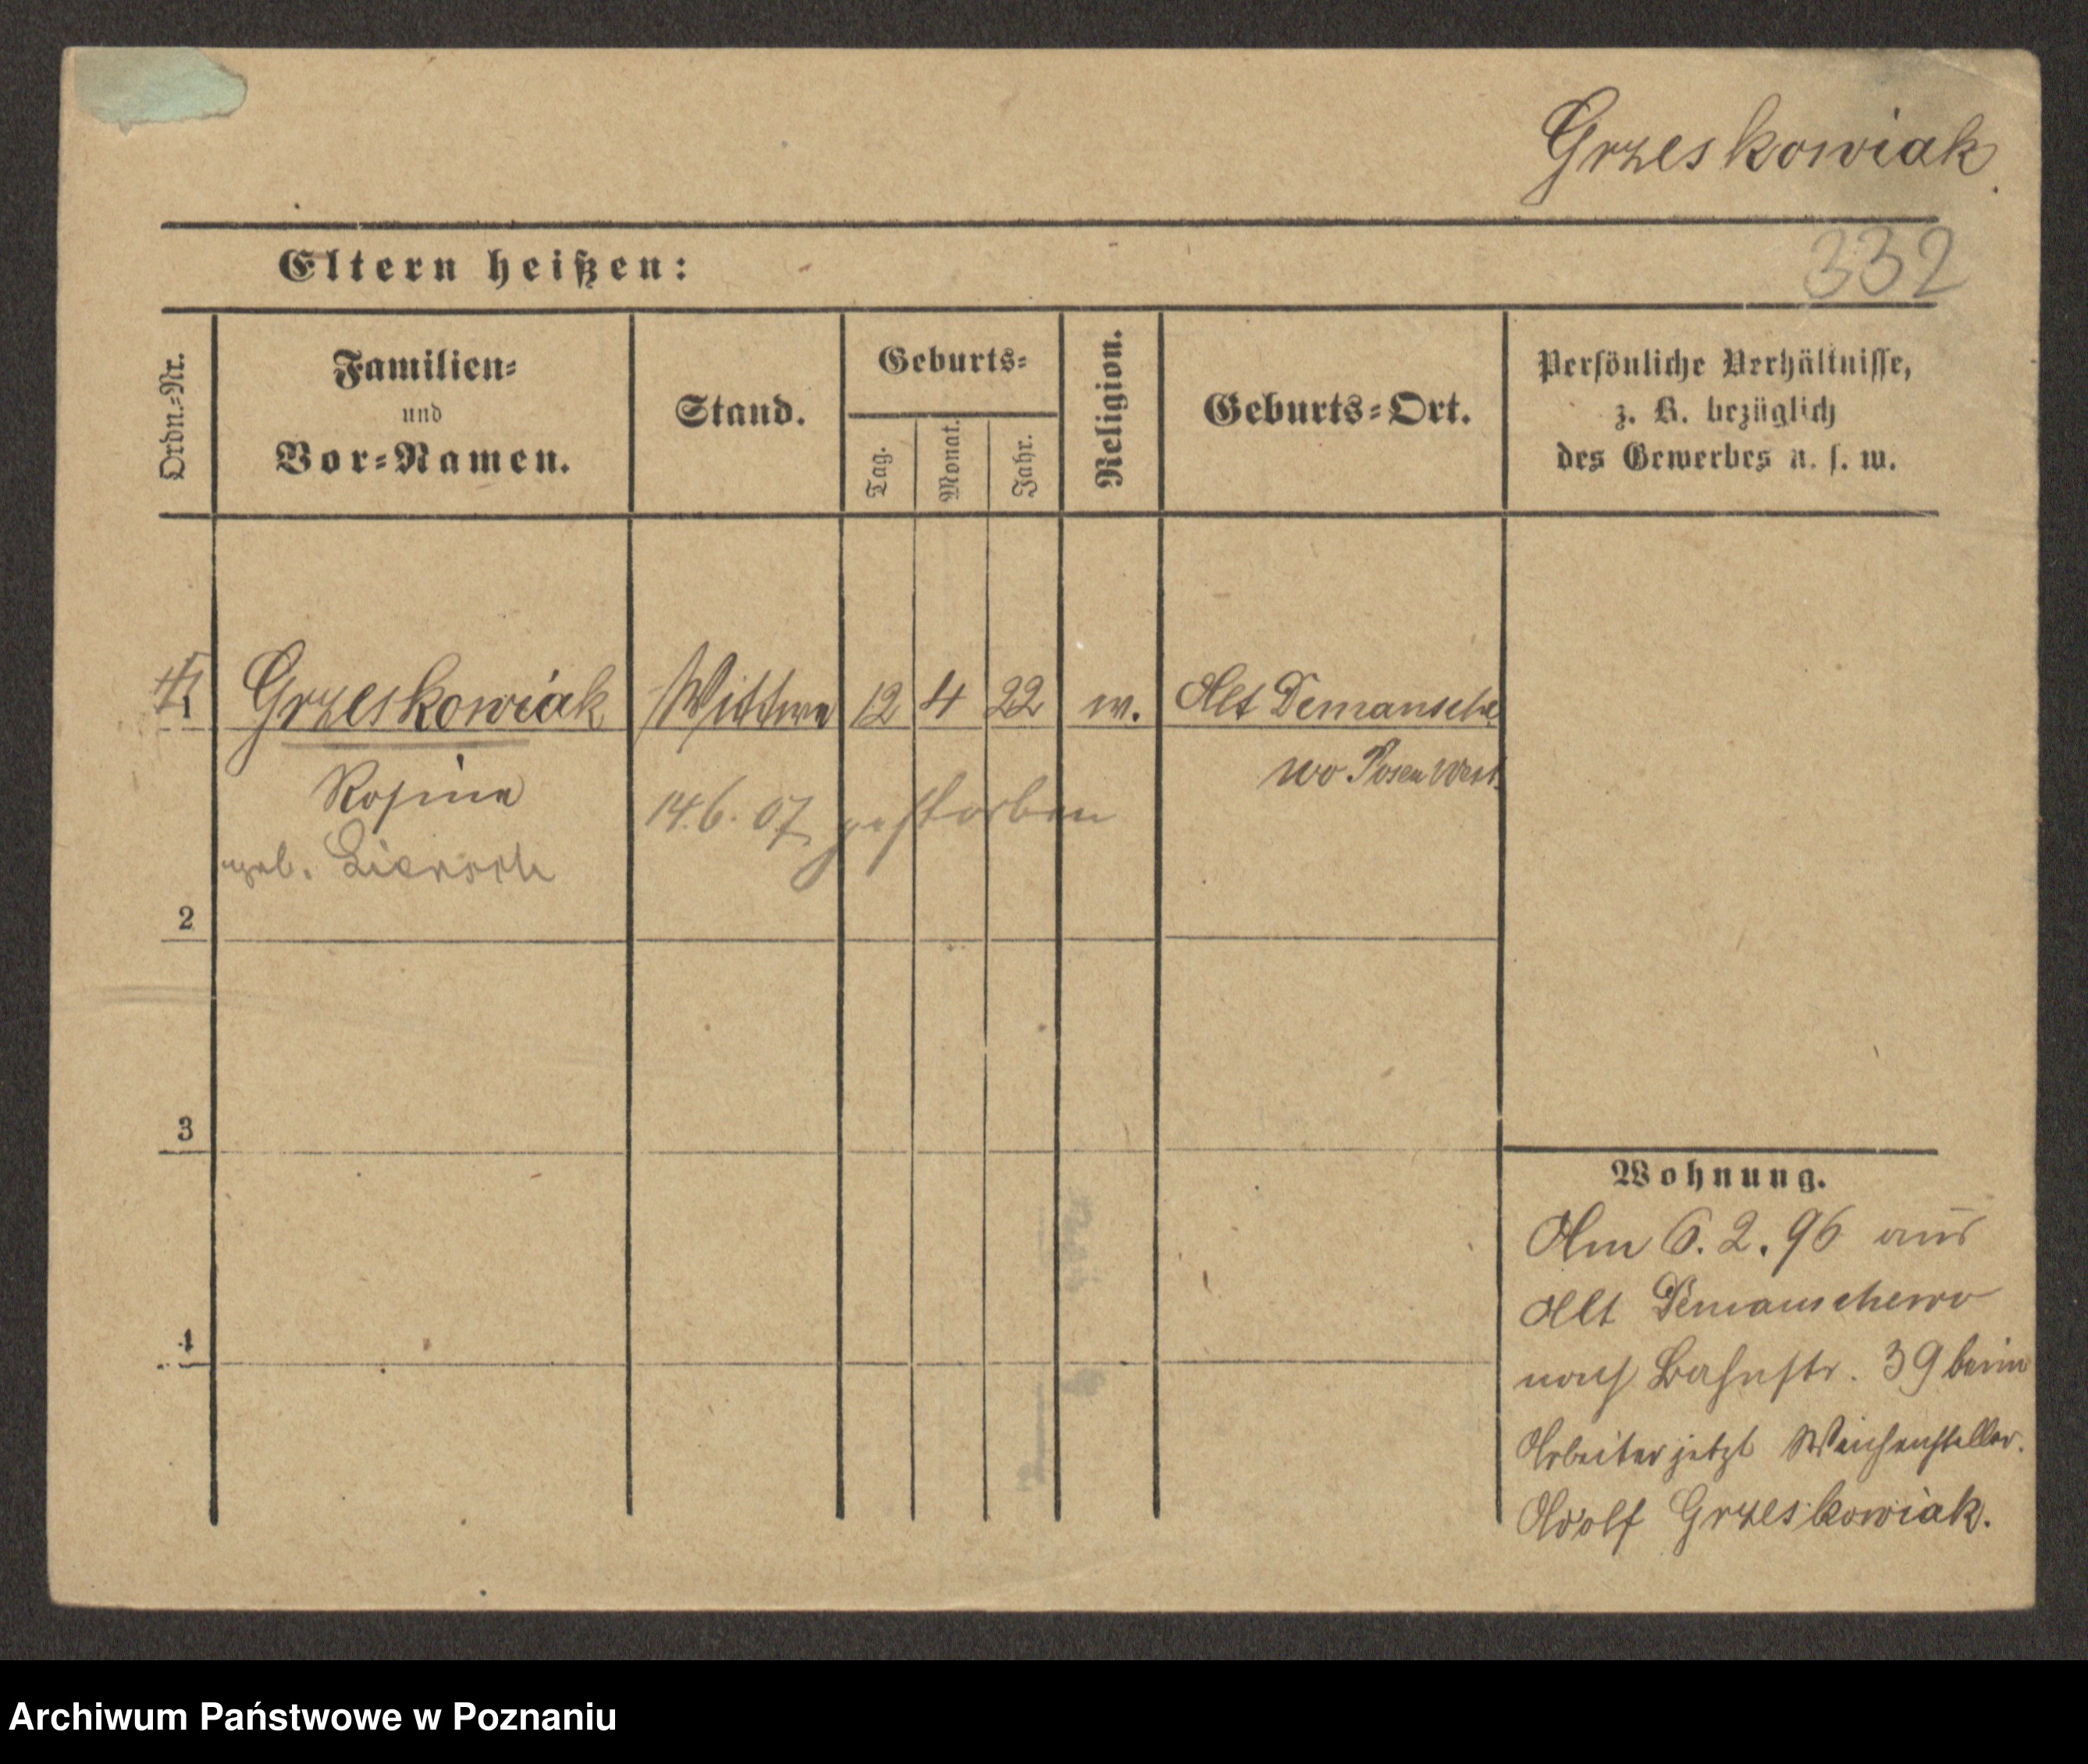 Grzeskowiak
Eltern heißen:
332
Ordn.=Nr.
Familien=
und
Vor=Namen.
Stand.
Geburts=
Tag.
Monat.
Jahr.
Religion.
Geburts=Ort.
Persönliche Verhältnisse,
z. B. bezüglich
des Gewerbes u. s. w.
1 Grzeskowiak Wittwe 12 4 22 w. Alt Demansche
Rosine wo Posen West.
14.6.07 gestorben
geb. Liersch
2
3
4
Wohnung.
Am 6.2.96 aus
Alt Demanschewo
nach Bahnstr. 39 beim
Arbeiter jetzt Weichensteller.
Adolf Grzeskowiak.
Archiwum Państwowe w Poznaniu